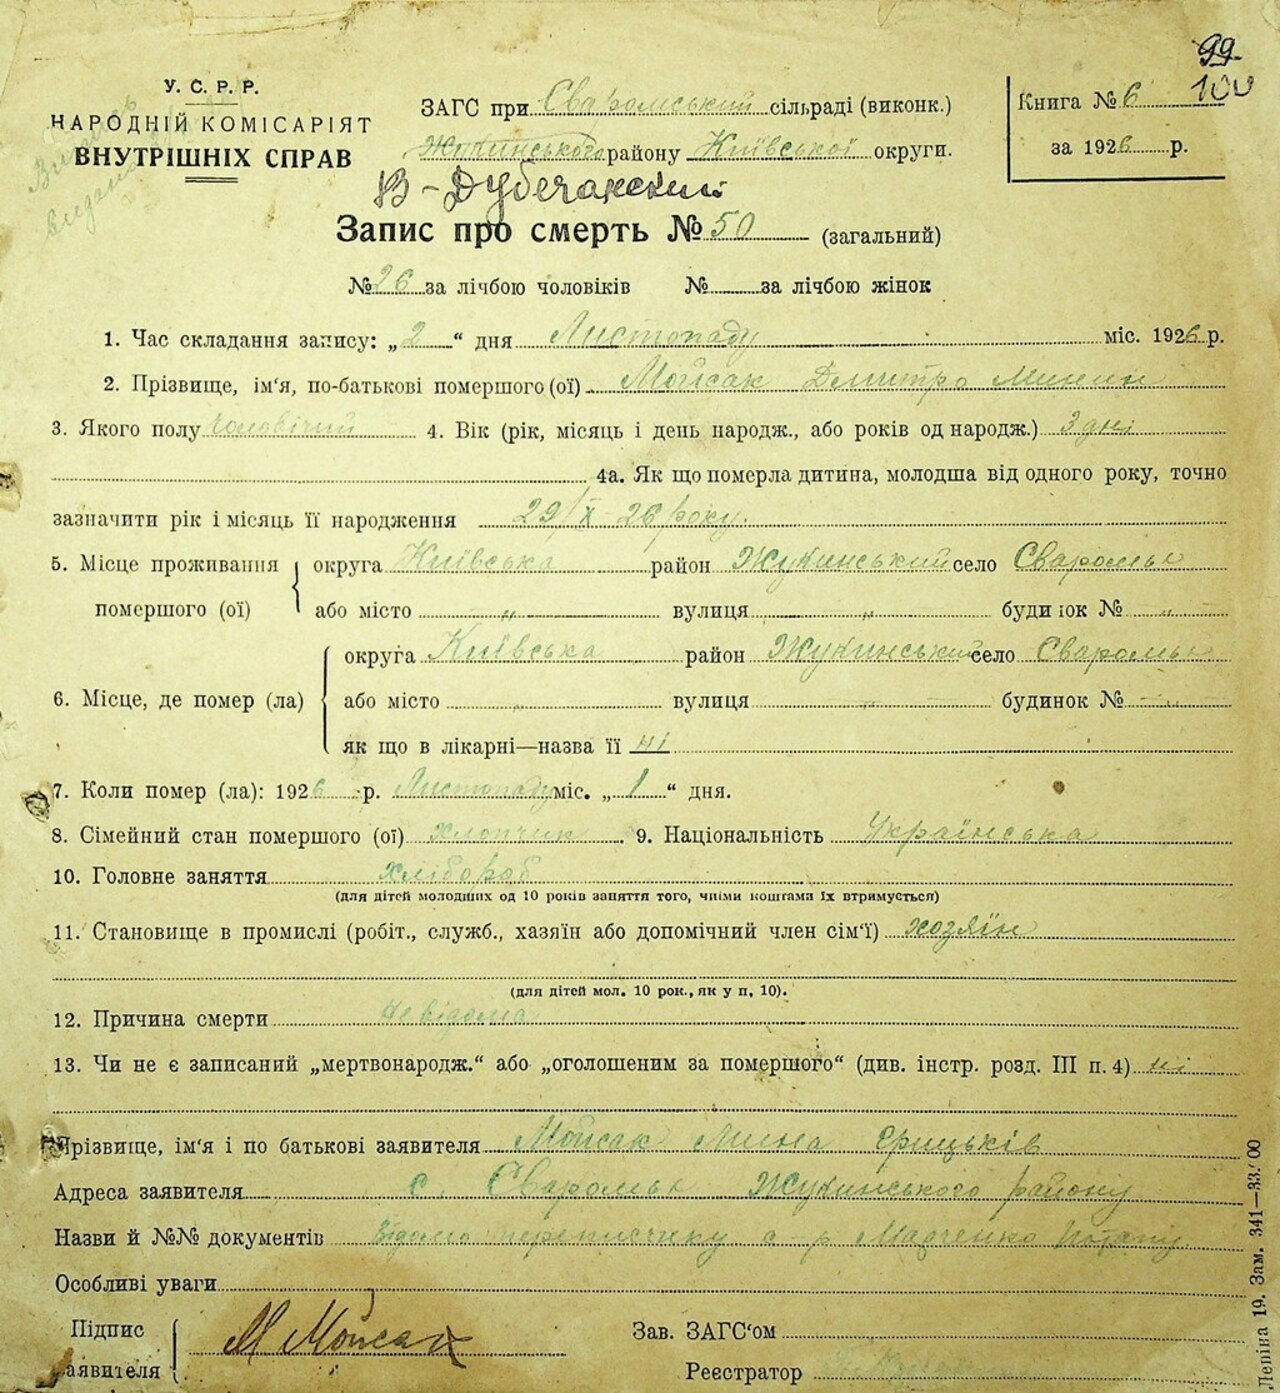 99.
100
У. С. Р. Р.
НАРОДНІЙ КОМІСАРІЯТ
ВНУТРІШНІХ СПРАВ
ЗАГС при Сваромський сільраді (виконк.)
Жукинського району Київської округи.
В-Дубечанский
Книга № 6
за 1926 р.
Запис про смерть № 50 (загальний)
№ 26 за лічбою чоловіків № за лічбою жінок
1. Час складання запису: „2“ дня Листопаду міс. 1926 р.
2. Прізвище, ім'я, по-батькові помершого (ої) Мойсак Дмитро Минин
3. Якого полу чоловічий 4. Вік (рік, місяць і день народж., або років од народж.) 3 дні
4а. Як що померла дитина, молодша від одного року, точно
зазначити рік і місяць її народження 29/X 26 року.
5. Місце проживання помершого (ої) округа Київська район Жукинський село Сваромье
або місто „ вулиця „ будинок № „
6. Місце, де помер (ла) округа Київська район Жукинський село Сваромье
або місто „ вулиця „ будинок № „
як що в лікарні—назва її ні
7. Коли помер (ла): 1926 р. Листопаду міс. „1“ дня.
8. Сімейний стан помершого (ої) хлопчик. 9. Національність Українська
10. Головне заняття хлібороб
(для дітей молодших од 10 років заняття того, чиїми коштами їх втримується)
11. Становище в промислі (робіт., служб., хазяїн або допомічний член сім'ї) хозяїн
(для дітей мол. 10 рок., як у п. 10).
12. Причина смерти невідома
13. Чи не є записаний „мертвонародж.“ або „оголошеним за помершого“ (див. інстр. розд. III п. 4) ні
Прізвище, ім'я і по батькові заявителя Мойсак Мина Грицьків
Адреса заявителя с. Сваромье Жукинського району
Назви й №№ документів Відомо переписчику с-р Марченко
Особливі уваги
Підпис заявителя М Мойсак
Зав. ЗАГС'ом
Реєстратор
19. Зам. 341—33.000